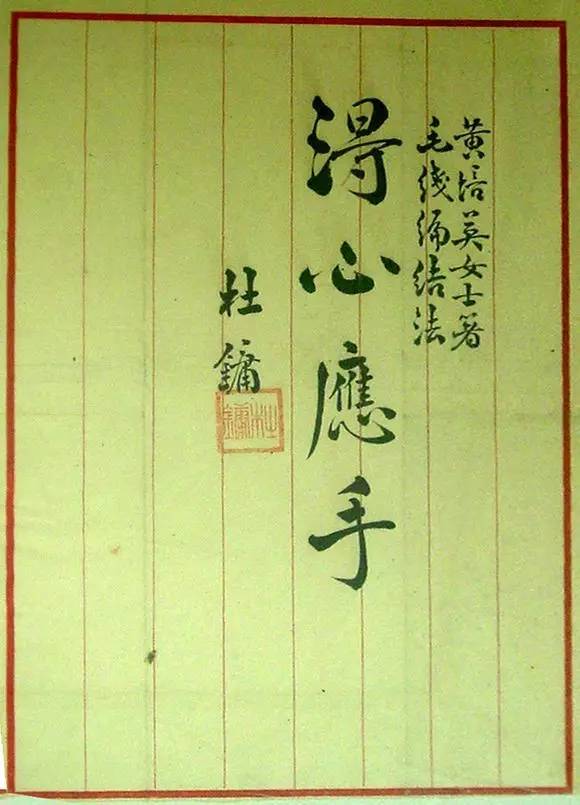 黃培英女士著
毛綫编结法
得心應手
杜鏞
杜鏞